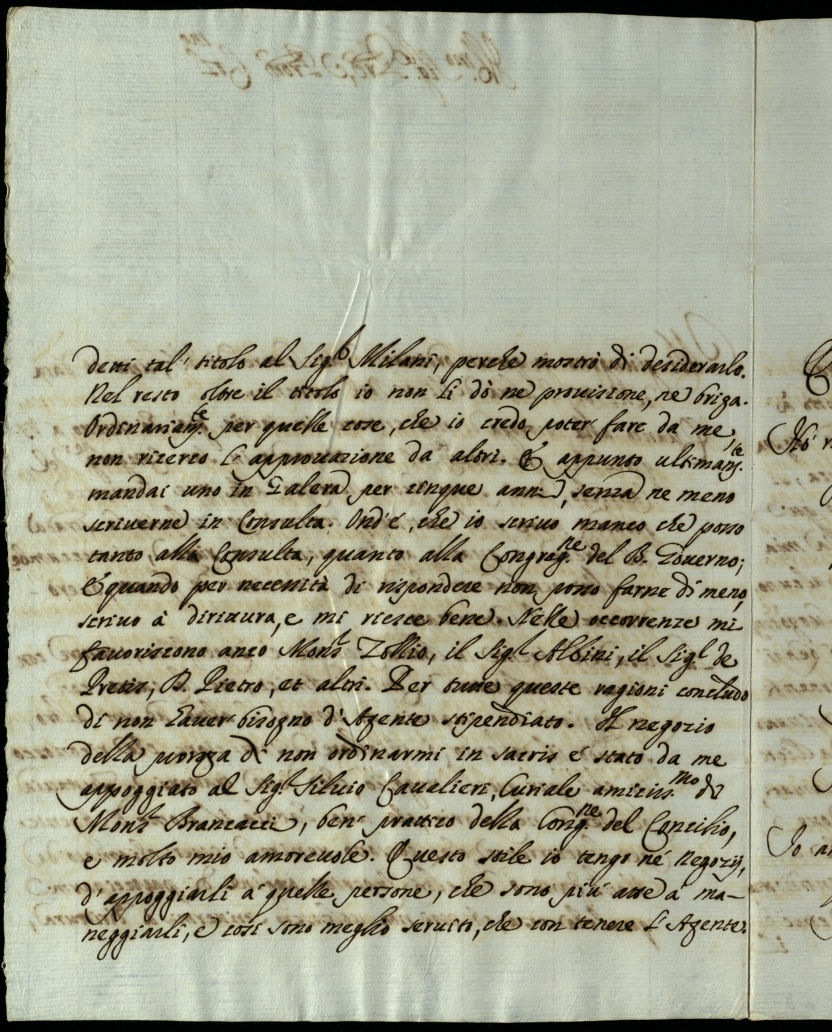 detti tal' titolo al Sig.r Milani, perche mostrò di desiderarlo.
Nel resto oltre il titolo io non li dò ne prouisione, ne briga.
Ordinariam.te per quelle cose, che io credo poter fare da me,
non ricerco l'approuazione da altri. Et appunto ultimam.te
mandai uno in Galera per cinque anni, senza ne meno
scriuerne in Consulta. Ond'è, che io scriuo manco che posso
tanto alla Consulta, quanto alla Congreg.ne del B. Gouerno;
E quando per necessità di rispondere non posso farne di meno,
scriuo à dirittura, e mi riesce bene. Nelle occorrenze mi
fauoriscono anco Mons.r Zollio, il Sig.r Albini, il Sig.r de
Pretis, D. Pietro, et altri. Per tutte queste ragioni concludo
di non hauer bisogno d'Agente stipendiato. Il negozio
della proroga di non ordinarmi in sacris è stato da me
appoggiato al Sig.r Siluio Caualieri, Curiale amiciss.mo di
Mons.r Brancacci, ben' prattico della Cong.ne del Concilio,
e molto mio amoreuole. Questo stile io tengo ne' Negozij,
d'appoggiarli a' quelle persone, che sono più atte a ma-
neggiarli, e così sono meglio seruito, che con tenere l'Agente.
Io